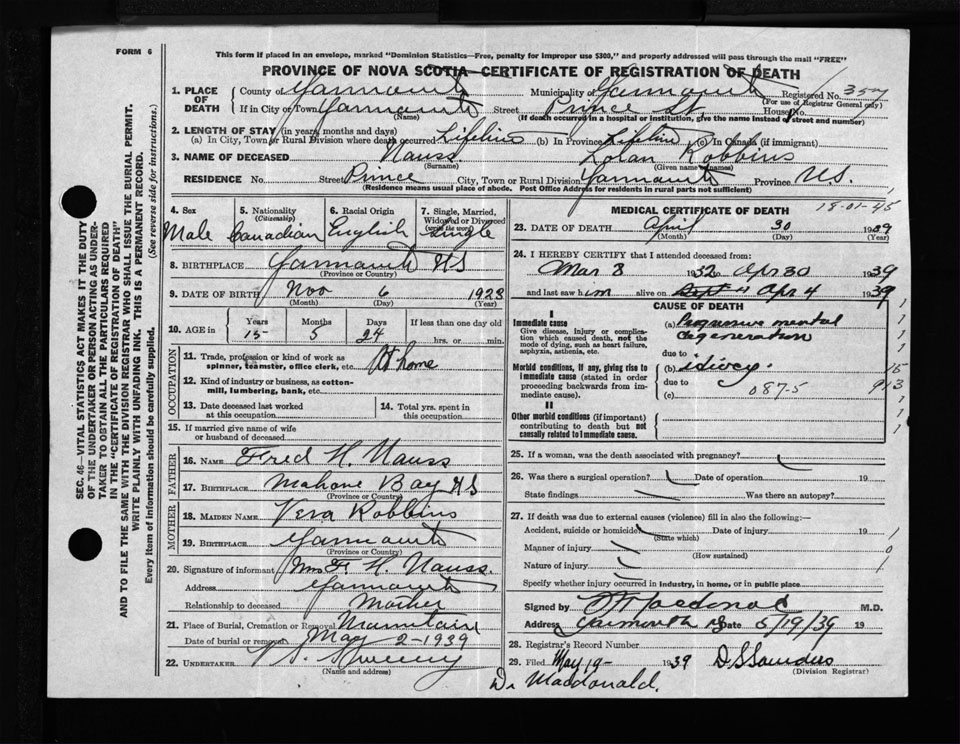 FORM 6
This form if placed in an envelope, marked "Dominion Statistics—Free, penalty for improper use $300," and properly addressed will pass through the mail "FREE"
PROVINCE OF NOVA SCOTIA—CERTIFICATE OF REGISTRATION OF DEATH
1. PLACE OF DEATH
County of Yarmouth Municipality of Yarmouth Registered No. 357
(For use of Registrar General only)
If in City or Town Yarmouth Street Prince St. House No.
(Name) (If death occurred in a hospital or institution, give the name instead of street and number)
2. LENGTH OF STAY (in years, months and days)
(a) In City, Town or Rural Division where death occurred Lifetime (b) In Province Lifetime (c) In Canada (if immigrant)
3. NAME OF DECEASED Nauss Loran Robbins
(Surname) (Given name or names)
RESIDENCE No. Street Prince City, Town or Rural Division Yarmouth Province N.S.
(Residence means usual place of abode. Post Office Address for residents in rural parts not sufficient)
4. Sex
Male
5. Nationality (Citizenship)
Canadian
6. Racial Origin
English
7. Single, Married, Widowed or Divorced (write the word)
Single
8. BIRTHPLACE Yarmouth NS
(Province or Country)
9. DATE OF BIRTH Nov 6 1923
(Month) (Day) (Year)
10. AGE in Years Months Days If less than one day old
15 5 24 hrs. or min.
OCCUPATION
11. Trade, profession or kind of work as spinner, teamster, office clerk, etc. At home
12. Kind of industry or business, as cotton-mill, lumbering, bank, etc.
13. Date deceased last worked at this occupation
14. Total yrs. spent in this occupation
15. If married give name of wife or husband of deceased
FATHER
16. NAME Fred H. Nauss
17. BIRTHPLACE Mahone Bay NS
(Province or Country)
MOTHER
18. MAIDEN NAME Vera Robbins
19. BIRTHPLACE Yarmouth
(Province or Country)
20. Signature of informant Mrs F. H. Nauss.
Address Yarmouth
Relationship to deceased Mother
21. Place of Burial, Cremation or Removal Mountain
Date of burial or removal May 2-1939
22. UNDERTAKER Sweeny
(Name and address)
MEDICAL CERTIFICATE OF DEATH
19-01-45
23. DATE OF DEATH April 30 1939
(Month) (Day) (Year)
24. I HEREBY CERTIFY that I attended deceased from:
Mar 8 1932 to Apr 30 1939
and last saw him alive on Sept 4 Apr 4 1939
CAUSE OF DEATH
I
Immediate cause
Give disease, injury or complication which caused death, not the mode of dying, such as heart failure, asphyxia, asthenia, etc.
(a) Progressive mental degeneration
due to
Morbid conditions, if any, giving rise to immediate cause (stated in order proceeding backwards from immediate cause).
(b) idiocy. 15
due to 087-5 913
(c)
II
Other morbid conditions (if important) contributing to death but not causally related to immediate cause.
25. If a woman, was the death associated with pregnancy?
26. Was there a surgical operation? Date of operation 19
State findings Was there an autopsy?
27. If death was due to external causes (violence) fill in also the following:—
Accident, suicide or homicide? Date of injury 19
(State which)
Manner of injury
(How sustained)
Nature of injury
Specify whether injury occurred in industry, in home, or in public place
Signed by Macdonald M.D.
Address Yarmouth NS Date 5/19/39 19
28. Registrar's Record Number
29. Filed May 19- 1939 D.S. Saunders
(Division Registrar)
Dr Macdonald.
SEC. 46—VITAL STATISTICS ACT MAKES IT THE DUTY
OF THE UNDERTAKER OR PERSON ACTING AS UNDER-
TAKER TO OBTAIN ALL THE PARTICULARS REQUIRED
IN THE "CERTIFICATE OF REGISTRATION OF DEATH"
AND TO FILE THE SAME WITH THE DIVISION REGISTRAR WHO SHALL ISSUE THE BURIAL PERMIT.
WRITE PLAINLY WITH UNFADING INK. THIS IS A PERMANENT RECORD.
Every item of information should be carefully supplied. (See reverse side for instructions.)